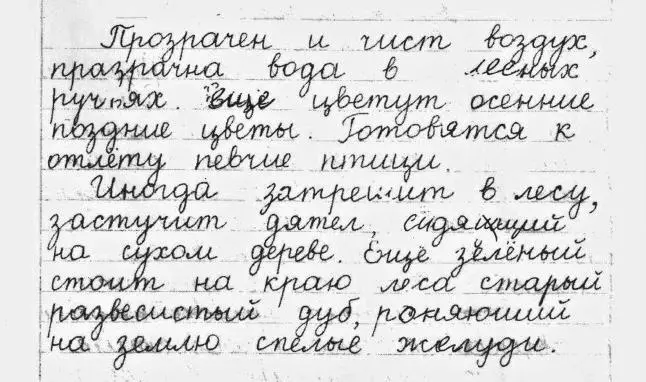 Прозрачен и чист воздух,
празрачна вода в лесных
ручьях. Еще цветут осенние
поздние цветы. Готовятся к
отлёту певчие птици.
Иногда затрещит в лесу,
застучит дятел, сидящий
на сухом дереве. Еще зелёный
стоит на краю леса старый
развесистый дуб, роняюший
на землю спелые желуди.